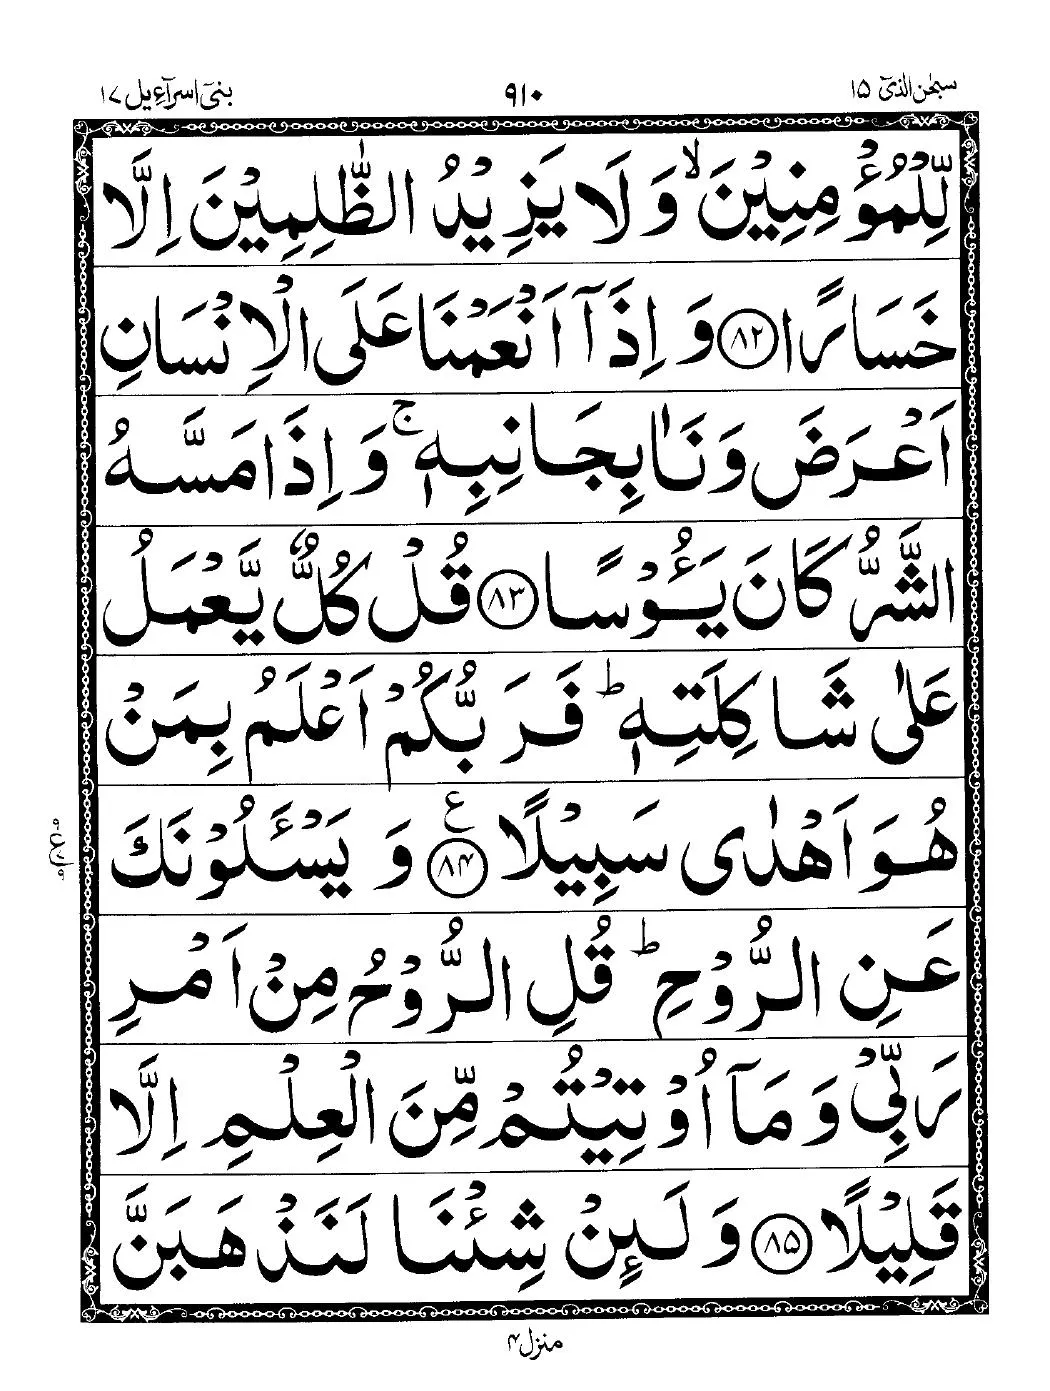 سبحٰن الذیٓ ۱۵
۹۱۰
بنیٓ اسرآءیل ۱۷
لِّلْمُؤْمِنِيْنَ ۙ وَلَا يَزِيْدُ الظّٰلِمِيْنَ اِلَّا
خَسَارًا ﴿۸۲﴾ وَاِذَآ اَنْعَمْنَا عَلَى الْاِنْسَانِ
اَعْرَضَ وَنَاٰ بِجَانِبِهٖ ۚ وَاِذَا مَسَّهُ
الشَّرُّ كَانَ يَـُٔوْسًا ﴿۸۳﴾ قُلْ كُلٌّ يَّعْمَلُ
عَلٰى شَاكِلَتِهٖ ؕ فَرَبُّكُمْ اَعْلَمُ بِمَنْ
هُوَ اَهْدٰى سَبِيْلًا ﴿۸۴﴾ ع وَيَسْـَٔلُوْنَكَ
عَنِ الرُّوْحِ ؕ قُلِ الرُّوْحُ مِنْ اَمْرِ
رَبِّىْ وَمَآ اُوْتِيْتُمْ مِّنَ الْعِلْمِ اِلَّا
قَلِيْلًا ﴿۸۵﴾ وَلَىِٕنْ شِئْنَا لَنَذْهَبَنَّ
منزل ۴